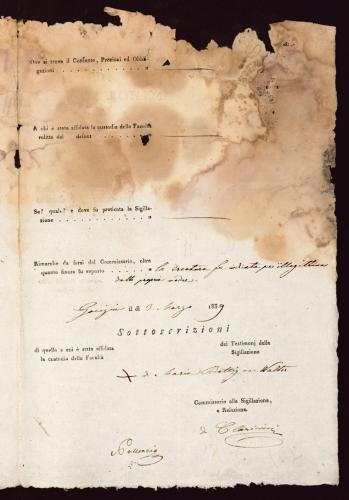 Ove si trova il Contante, Preziosi ed Obbli-
gazioni . . . . . . . . . . "
A chi è stata affidata la custodia della Facoltà
relitta dal defunt . . . . . . "
Se? quale? e dove fu praticata la Sigil-
lazione . . . . . . . . . . "
Rimarche da farsi dal Commissario, oltre
quanto finora fu esposto . . . . "
la creatura fu
dalla propria madre.
Gorizia il dì 3. Marzo 1839
Sottoscrizioni
di quello a cui è stata affidata
la custodia della Facoltà
dei Testimonj della
Sigillazione
+ di Maria
Commissario alla Sigillazione,
e Relazione.